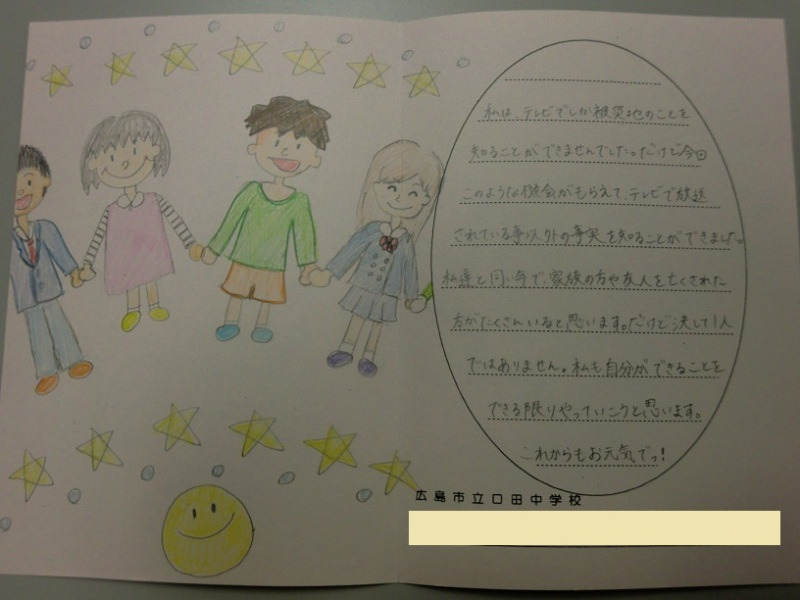 私は、テレビでしか被災地のことを
知ることができませんでした。だけど今回
このような機会がもらえて、テレビで放送
されている事以外の事実を知ることができました。
私達と同い年で、家族の方や友人を亡くされた
方がたくさんいると思います。だけど決して1人
ではありません。私も自分ができることを
できる限りやっていこうと思います。
これからもお元気でっ!
広島市立口田中学校